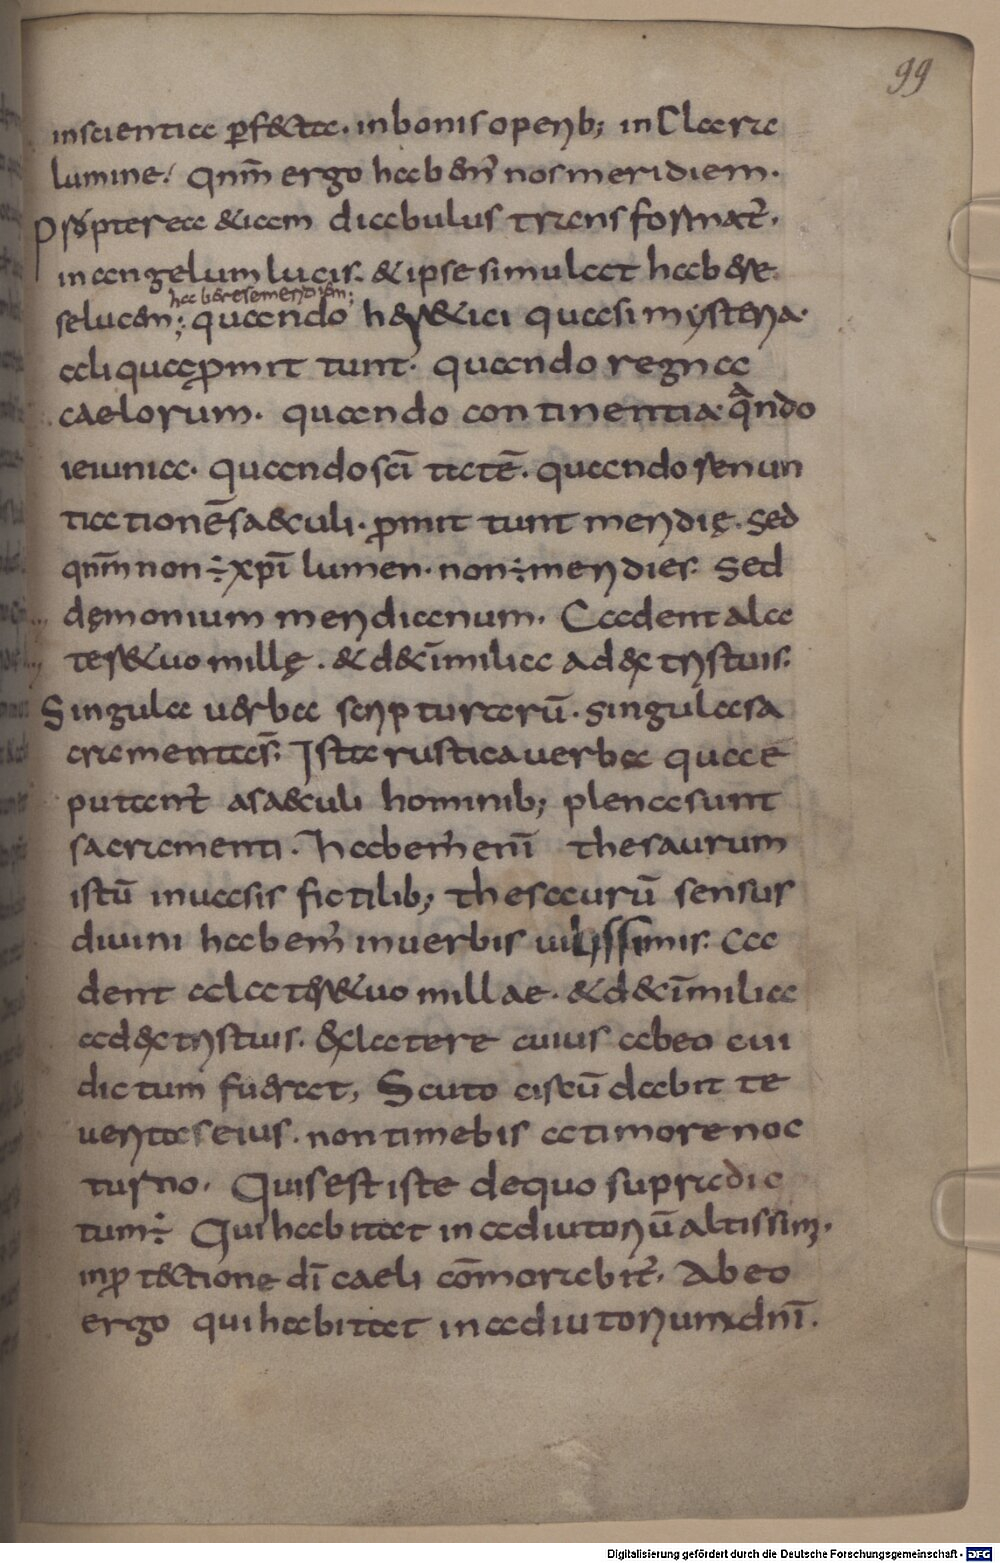 99
inscientia p̄f&ta. inbonisoperib; inClara
lumine. Qnm̄ ergo habem̄ nosmeridiem.
Propterea &iam diabulus transformat̄.
inangelumlucis. &ipsesimulat habere
haberesemeridiem;
selucem; quando her&ici quasimysteria.
aliquap̄mittunt. quando regna
caelorum. quando continentia. qando
ieiunia. quandosci̅tatē. quandorenun
tiationēsaeculi. p̄mittunt meridię. Sed
qnm̄non÷xp̄i lumen. non÷meridies. Sed
dęmonium meridianum. Cadent ala
ter&uo millę. &d&īmilia adextristuis.
Singula uerba scripturarū. singulasa
cramentas̄. Istarusticauerba quae
putant̄ asaeculi hominib; plenasunt
sacramenti. habem̄enī thesaurum
istū inuasis fictilib; thesaurū sensus
diuini habem̄ inuerbis uilissimis. Ca
dent alater&uo millae. &d&īmilia
adextristuis. &latere cuius abeo cui
dictum fuerat, Scuto ciscū dabit te
ueritaseius. nontimebis atimorenoc
turno. Quisestiste dequo supradic
tum÷ Quihabitat inadiutoriū altissimi.
inp̄tectione dī caeli cōmorabit̄. Abeo
ergo quihabitat inadiutoriumdnī.
Digitalisierung gefördert durch die Deutsche Forschungsgemeinschaft - DFG